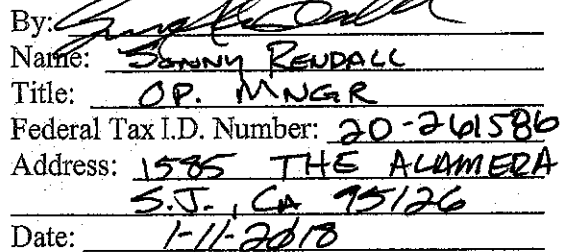 By:
Name: SONNY RENDALL
Title: OP. MNGR
Federal Tax I.D. Number: 20-261586
Address: 1585 THE ALAMERA
S.J., CA 95126
Date: 1-11-2018